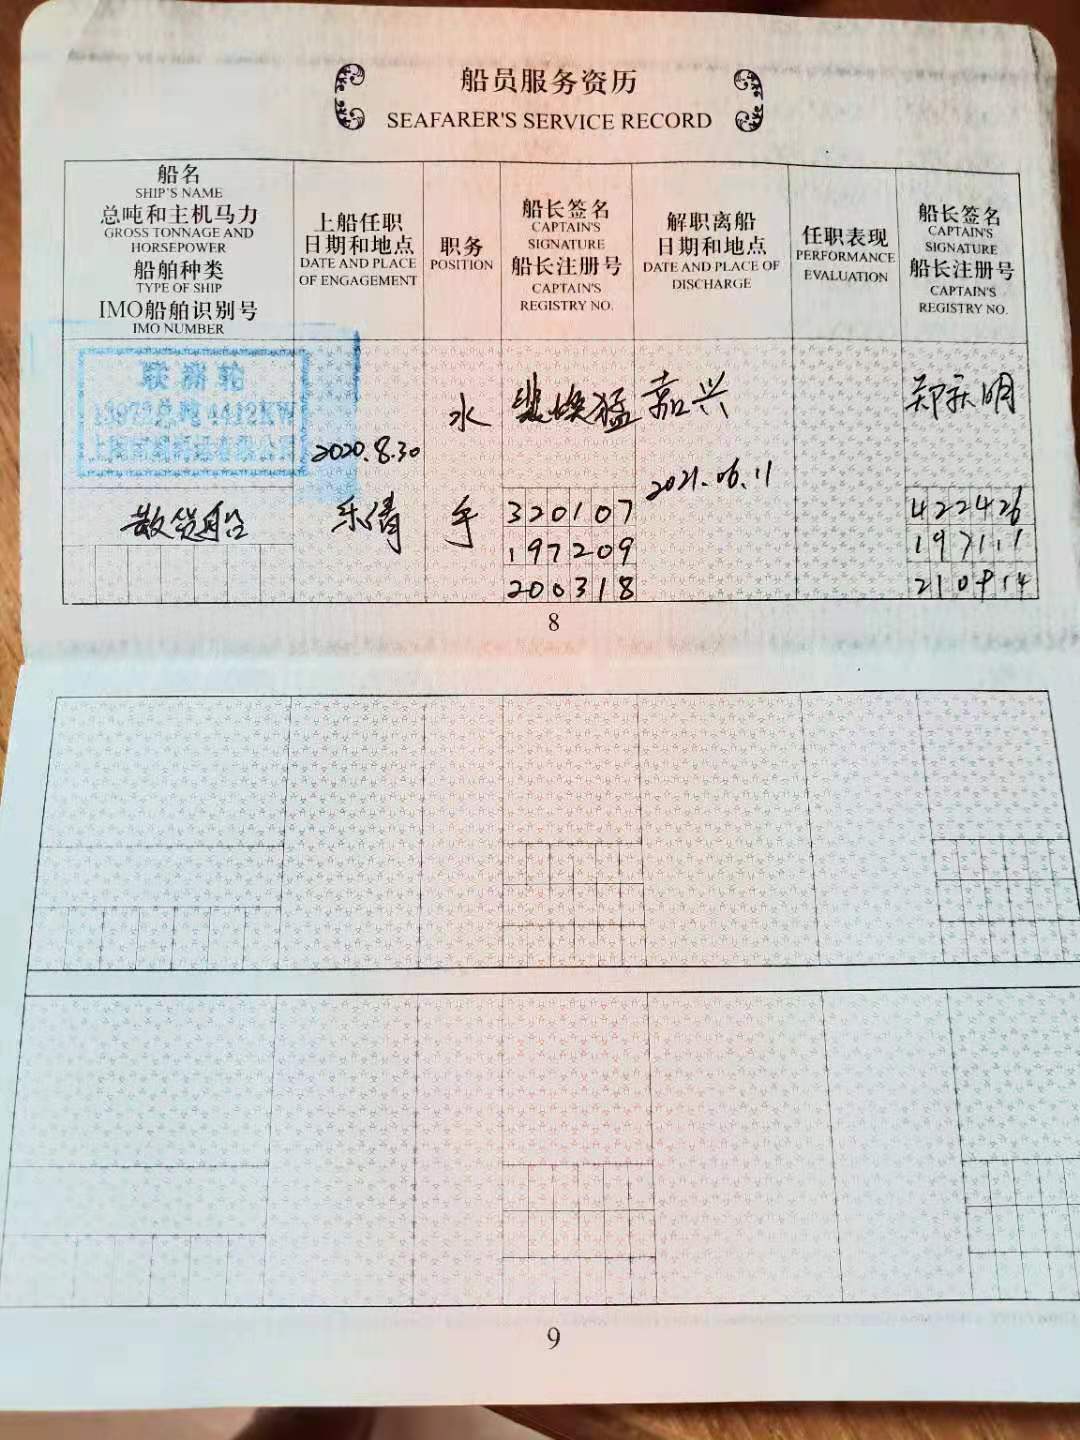 船员服务资历
SEAFARER'S SERVICE RECORD
船名
SHIP'S NAME
总吨和主机马力
GROSS TONNAGE AND
HORSEPOWER
船舶种类
TYPE OF SHIP
IMO船舶识别号
IMO NUMBER
上船任职
日期和地点
DATE AND PLACE
OF ENGAGEMENT
职务
POSITION
船长签名
CAPTAIN'S
SIGNATURE
船长注册号
CAPTAIN'S
REGISTRY NO.
解职离船
日期和地点
DATE AND PLACE OF
DISCHARGE
任职表现
PERFORMANCE
EVALUATION
船长签名
CAPTAIN'S
SIGNATURE
船长注册号
CAPTAIN'S
REGISTRY NO.
联 轮
总吨 4412KW
散货船
2020.8.30
水
手
320107
197209
200318
嘉兴
2021.06.11
郑 明
422426
8
9